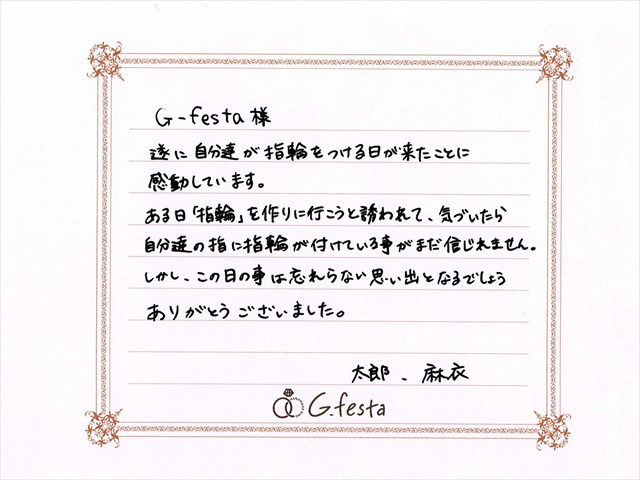 G-festa 様
遂に自分達が指輪をつける日が来たことに
感動しています。
ある日「指輪」を作りに行こうと誘われて、気づいたら
自分達の指に指輪が付けている事がまだ信じれません。
しかし、この日の事は忘れらない思い出となるでしょう
ありがとうございました。
太郎、麻衣
G.festa